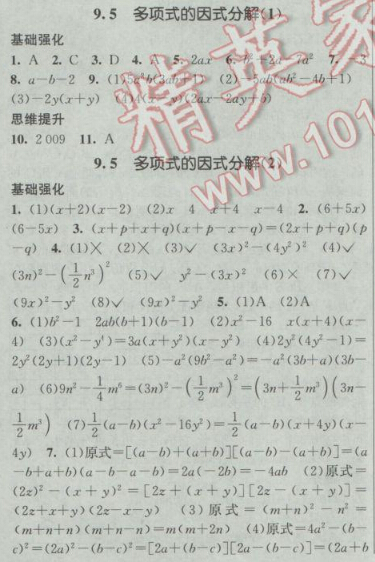 9.5 多项式的因式分解(1)
基础强化
1. A 2. C 3. D 4. A 5. 2ax 6. 7. -3
8. a-b-2 9. (1) (3ab+1) (2)-5ab(ab²-4b+1)
(3)-2y(x+y) (4) (x-y)(2ax-2ay+5)
思维提升
10. 2 009 11. A
9.5 多项式的因式分解(2)
基础强化
1. (1)(x+2)(x-2) (2)x 4 x+4 x-4 2. (6+5x)
(6-5x) 3. (x+p+x+q)(x+p-x-q)=(2x+p+q)(p
-q) 4. (1)✕ (2)✕ (3)✓ (3x)²-(4y²)² (4)✓
(3n)²-(1/2 n³)² (5)✓ y²-(3x)² (6)✕ (7)✓
(9x)²-y² (8)✓ (9x)²-y² 5. (1)A (2)A
6. (1)b²-1 2ab(b+1)(b-1) (2)x²-16 x(x+4)(x-
4) (3)(x²-y⁴)=3a(x+y²)(x-y²) (4)2y²(4y²-1)=
2y²(2y+1)(2y-1) (5)-a²(9b²-a²)=-a²(3b+a)(3b-
a) (6)9n²-1/4 m⁶=(3n)²-(1/2 m³)²=(3n+1/2 m³)(3n-
1/2 m³) (7)1/2(a-b)(x²-16y²)=1/2(a-b)(x+4y)(x-
4y) 7. (1)原式=[(a-b)+(a+b)][(a-b)-(a+b)]=(a
-b+a+b)(a-b-a-b)=2a(-2b)=-4ab (2)原式=
(2z)²-(x+y)²=[2z+(x+y)][2z-(x+y)]=
(2z+x+y)(2z-x-y) (3)原式=(m+n)²-n²=
(m+n+n)(m+n-n)=m(m+2n) (4)原式=4a²-(b-
c)²=(2a)²-(b-c)²=[2a+(b-c)][2a-(b-c)]=(2a+b
精英家
www.101